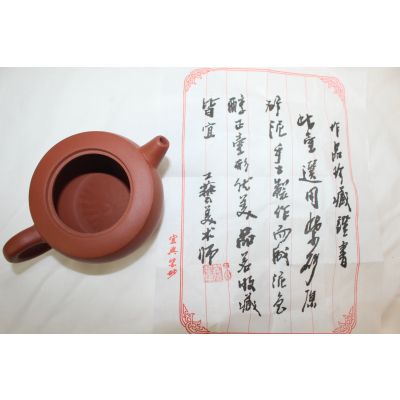 作品收藏證書
此壺選用紫砂原
矿泥手工製作而成泥色
醇正壺形优美品茗收藏
皆宜
工藝美术师
宜興紫砂